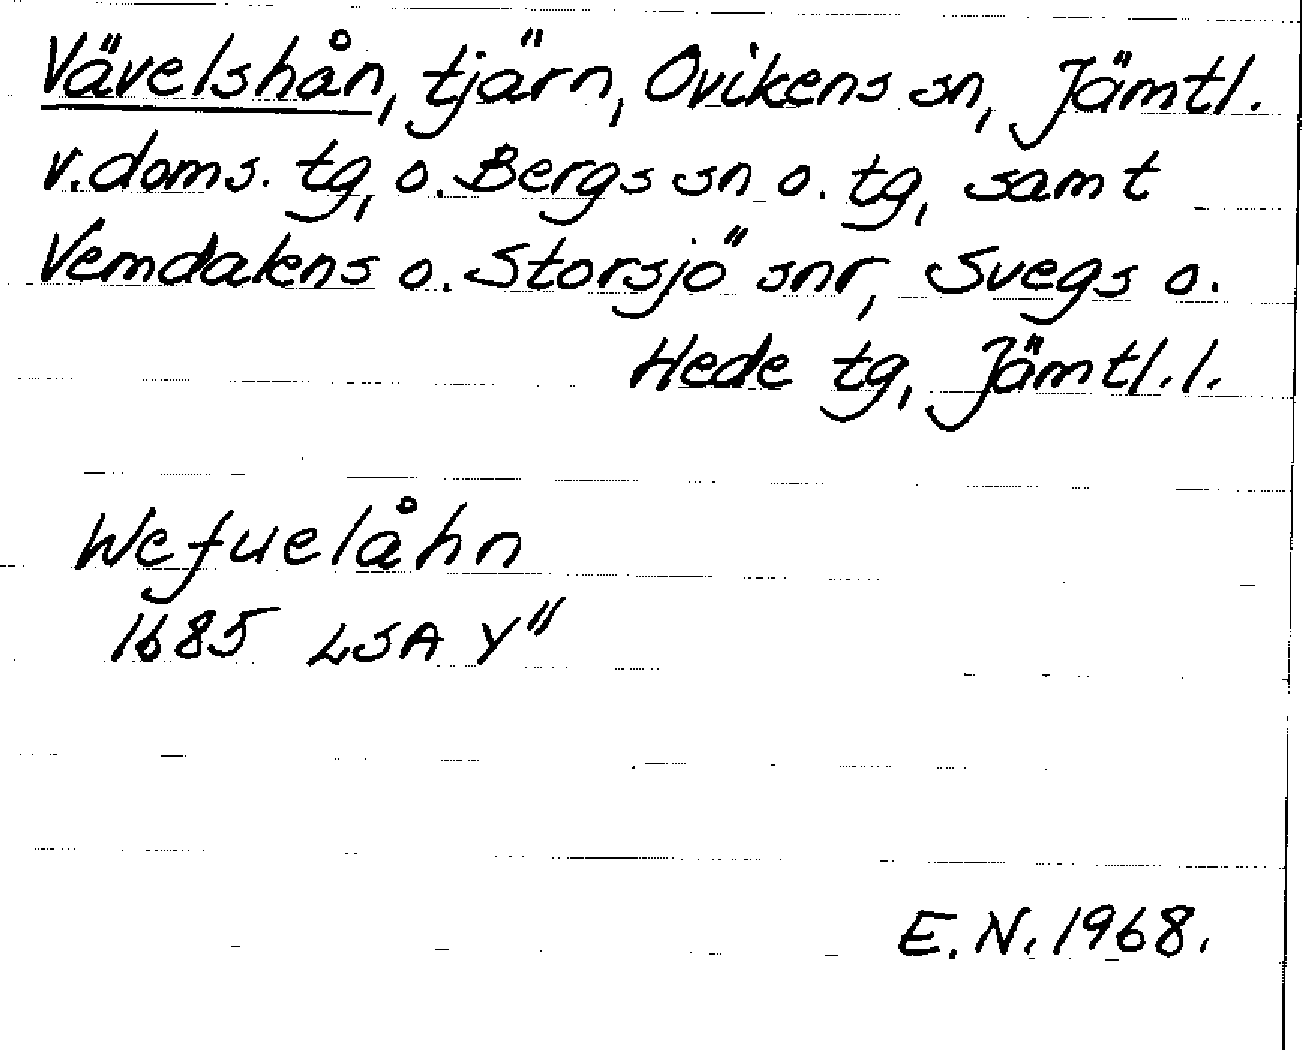 Vävelshån, tjärn, Ovikens sn, Jämtl.
v.doms. tg, o. Bergs sn o. tg, samt
Vemdalens o. Storsjö snr, Svegs o.
Hede tg, Jämtl.l.
Wefuelåhn
1685 LSA Y"
E.N. 1968.